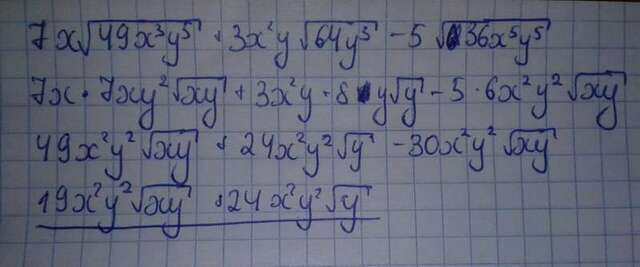 7x√(49x³y⁵) + 3x²y √(64y³) - 5 √(36x⁵y⁵)
7x · 7xy²√(xy) + 3x²y · 8y√y - 5 · 6x²y² √(xy)
49x²y² √(xy) + 24x²y² √y - 30x²y² √(xy)
19x²y² √(xy) + 24x²y² √y